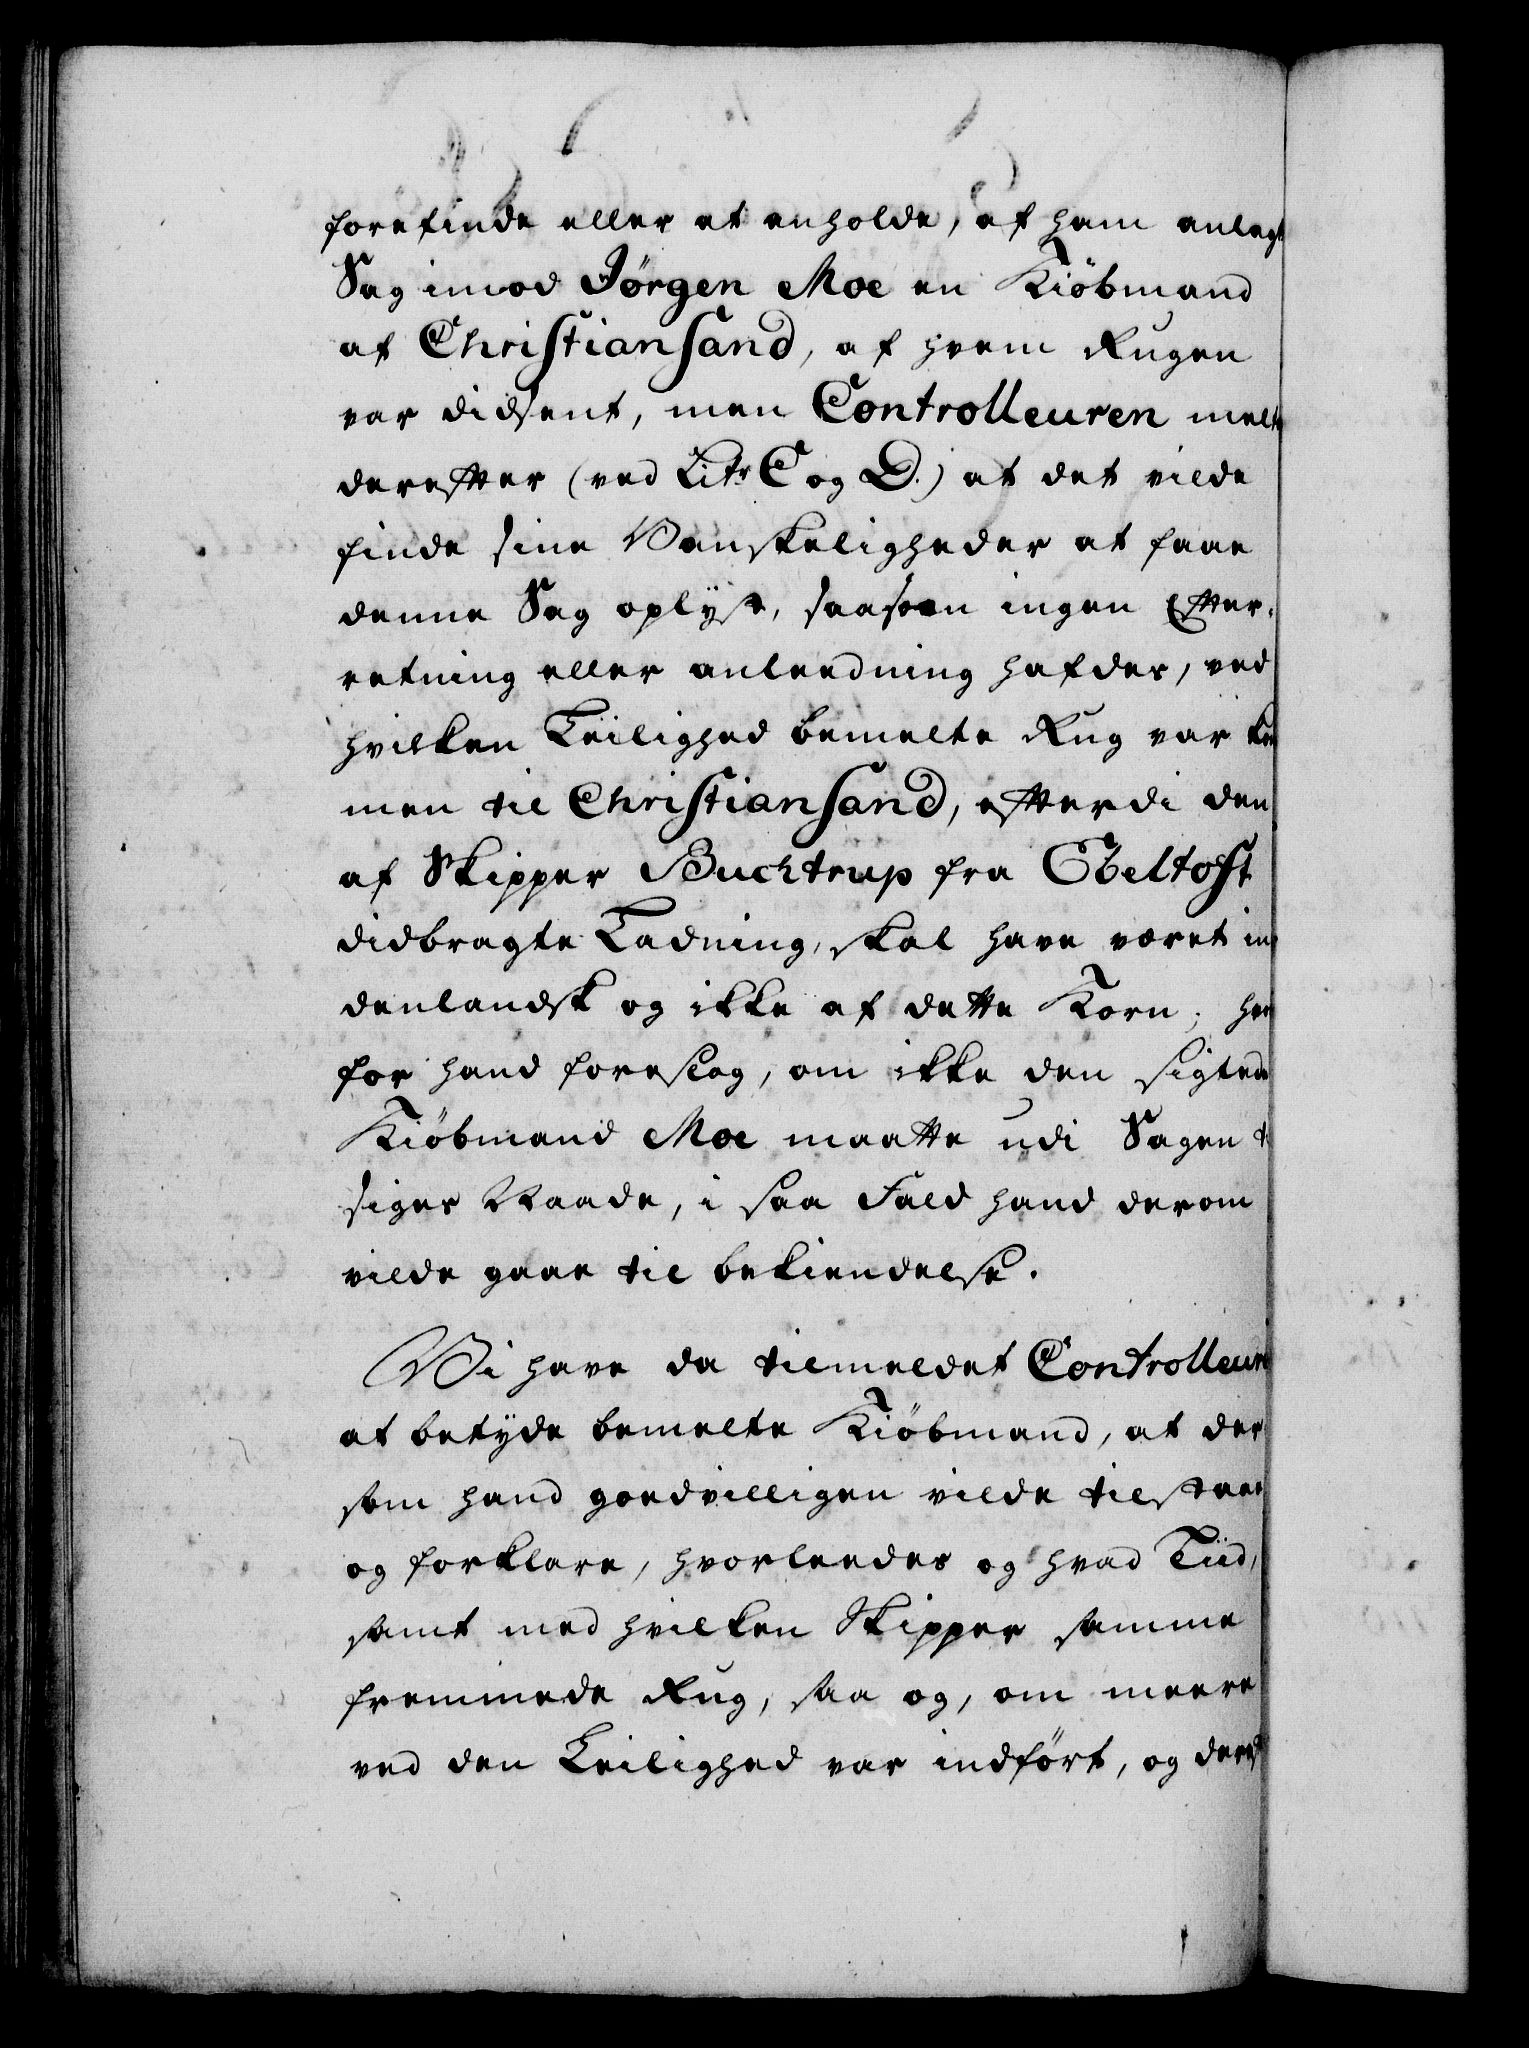 forefinde eller at anholde, af ham anlegt
Sag imod Jørgen Moe en Kiöbmand
af Christiansand, af hvem Rugen
var didsent, men Controlleuren melte
derefter (ved Litr C og D.) at det vilde
finde sine Vanskeligheder at faae
denne Sag oplÿst, saasom ingen Efter-
retning eller anleedning hafdes, ved
hvilken Leilighed bemelte Rug var kom
men til Christiansand, efterdi den
af Skipper Buchtrup fra Ebeltoft
didbragte Ladning, skal have været in
denlandsk og ikke af dette Korn; hvor
for hand foreslog, om ikke den sigtede
Kiöbmand Moe maatte udi Sagen
siges Naade, i saa Fald hand derom
vilde gaae til bekiendelse.
Vi have da tilmeldet Controlleuren
at betyde bemelte Kiöbmand, at der
som hand goedvilligen vilde tilstaae
og forklare, hvorleedes og hvad Tiid,
samt med hvilken Skipper samme
fremmede Rug, saa og, om meere
ved den Leilighed var indført, og